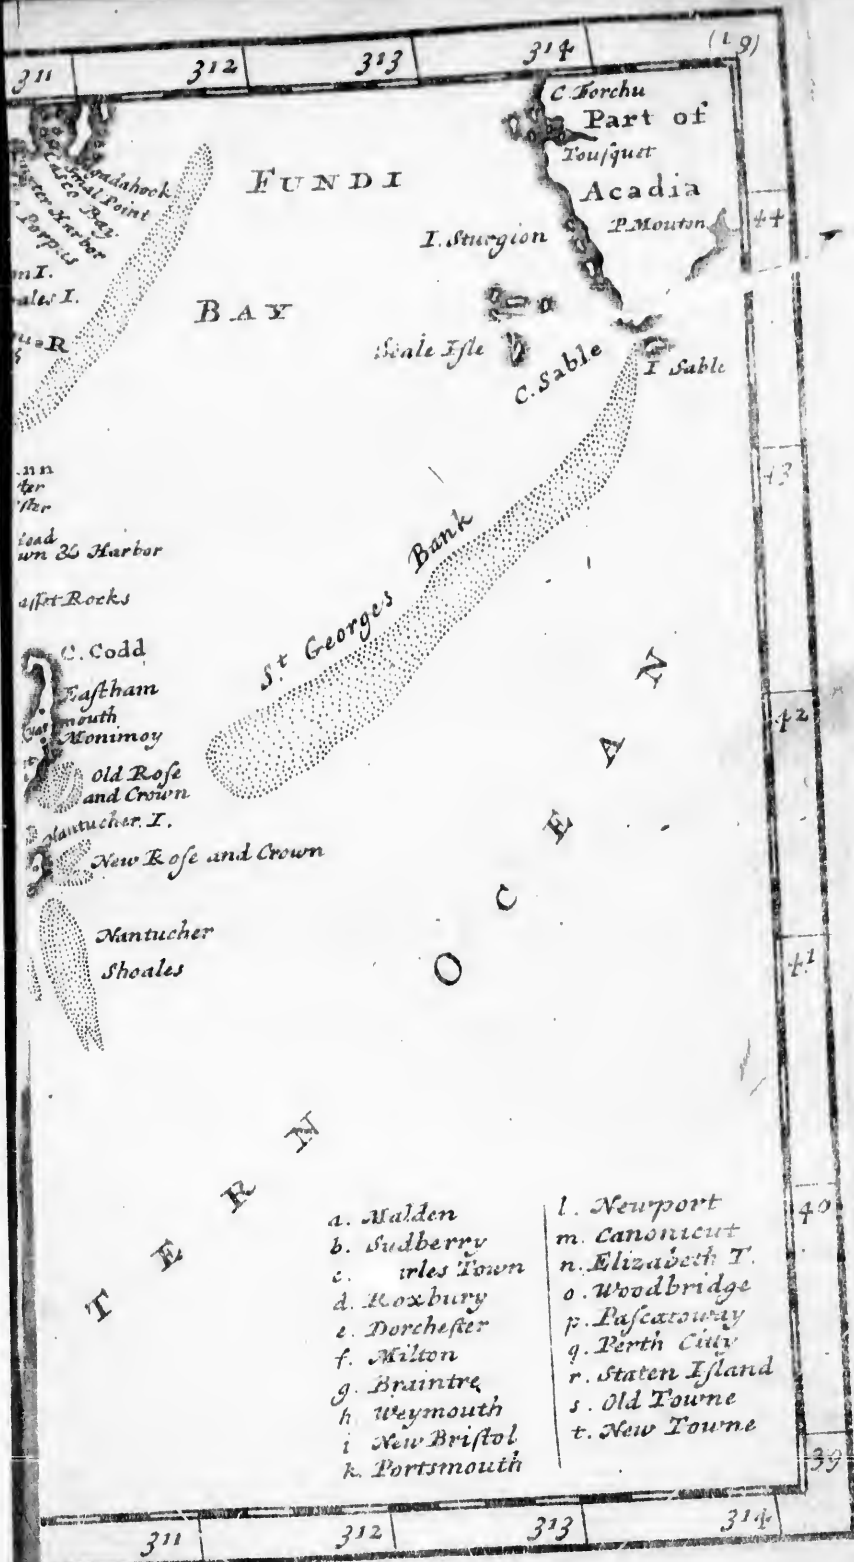 311 312 313 314 (19)
C Forchu
Part of
Tousquet
Acadia
P. Mouton
44
FUNDI
BAY
Small Point
Casco Bay
Harbor
Porpus
I. Sturgion
Seale Isle
C. Sable
I Sable
43
Harbor
Rocks
St Georges Bank
C. Codd
Eastham
mouth
Monimoy
Old Rose
and Crown
Nantucher. I.
New Rose and Crown
Nantucher
Shoales
42
41
TERN OCEAN
40
a. Malden
b. Sudberry
c. rles Town
d. Roxbury
e. Dorchester
f. Milton
g. Braintre
h Weymouth
i New Bristol
k. Portsmouth
l. Newport
m. Canonicut
n. Elizabeth T.
o. Woodbridge
p. Pascatoway
q. Perth Citty
r. Staten Island
s. Old Towne
t. New Towne
39
311 312 313 314